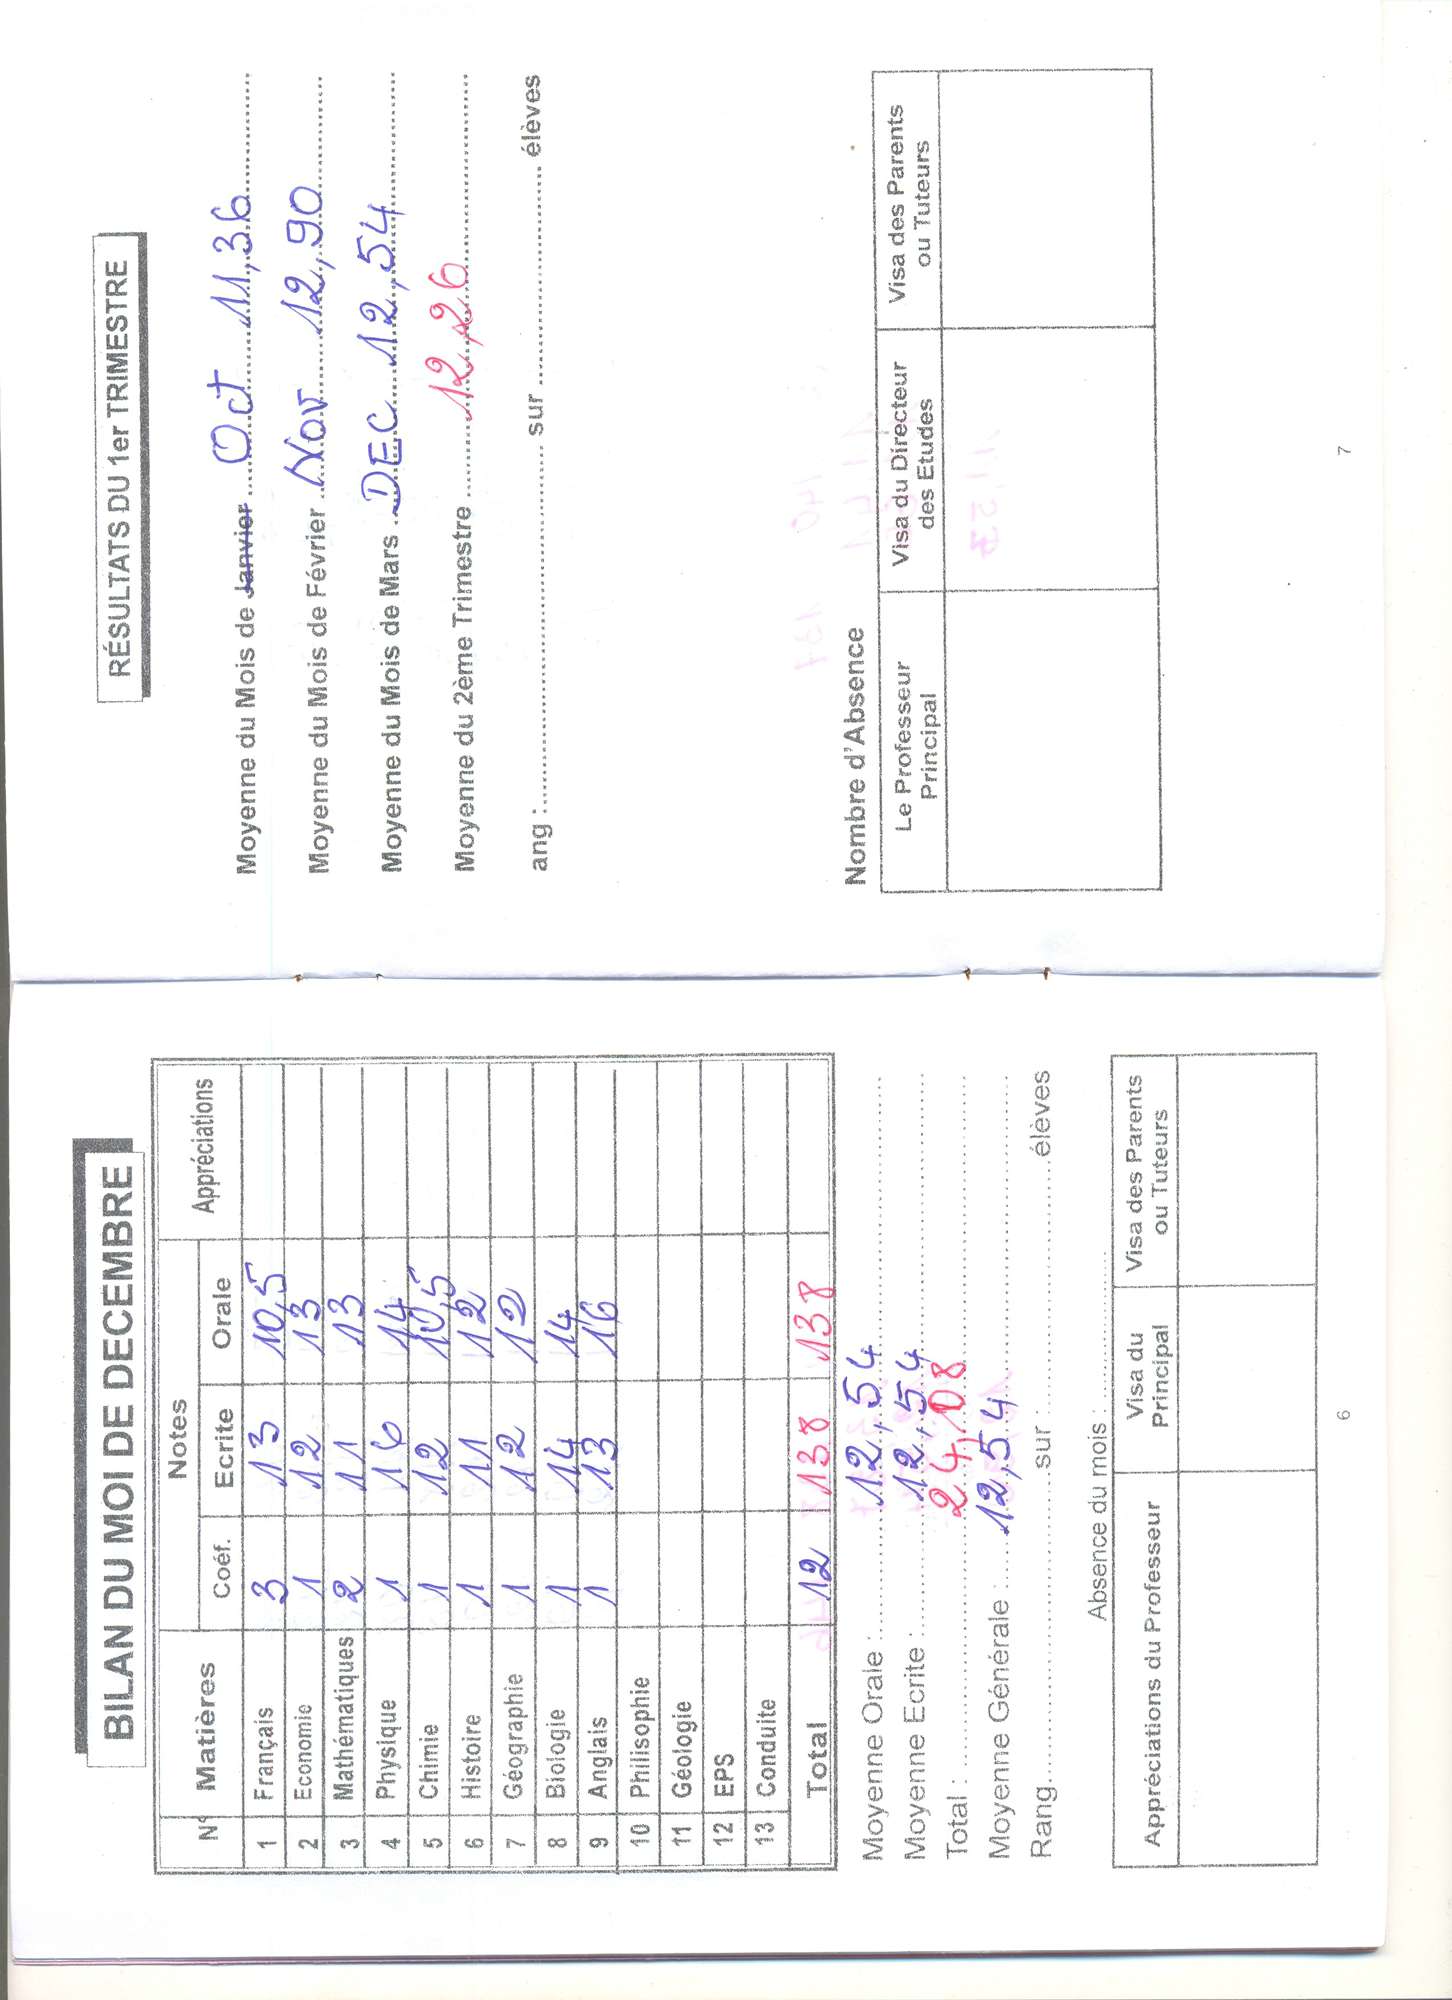 BILAN DU MOI DE DECEMBRE
N° Matières Notes Appréciations
Coéf. Ecrite Orale
1 Français 3 13 10,5
2 Economie 1 12 13
3 Mathématiques 2 11 13
4 Physique 1 16 14
5 Chimie 1 12 10,5
6 Histoire 1 11 12
7 Géographie 1 12 12
8 Biologie 1 14 14
9 Anglais 1 13 16
10 Philisophie
11 Géologie
12 EPS
13 Conduite
Total 12 138 138
Moyenne Orale : 12,54
Moyenne Ecrite : 12,54
Total : 24,08
Moyenne Générale : 12,54
Rang sur : élèves
Absence du mois :
Appréciations du Professeur Visa du Principal Visa des Parents ou Tuteurs
6
RÉSULTATS DU 1er TRIMESTRE
Moyenne du Mois de Janvier Oct 11,36
Moyenne du Mois de Février Nov 12,90
Moyenne du Mois de Mars DEC 12,54
Moyenne du 2ème Trimestre 12,26
ang : sur élèves
Nombre d'Absence
Le Professeur Principal Visa du Directeur des Etudes Visa des Parents ou Tuteurs
7